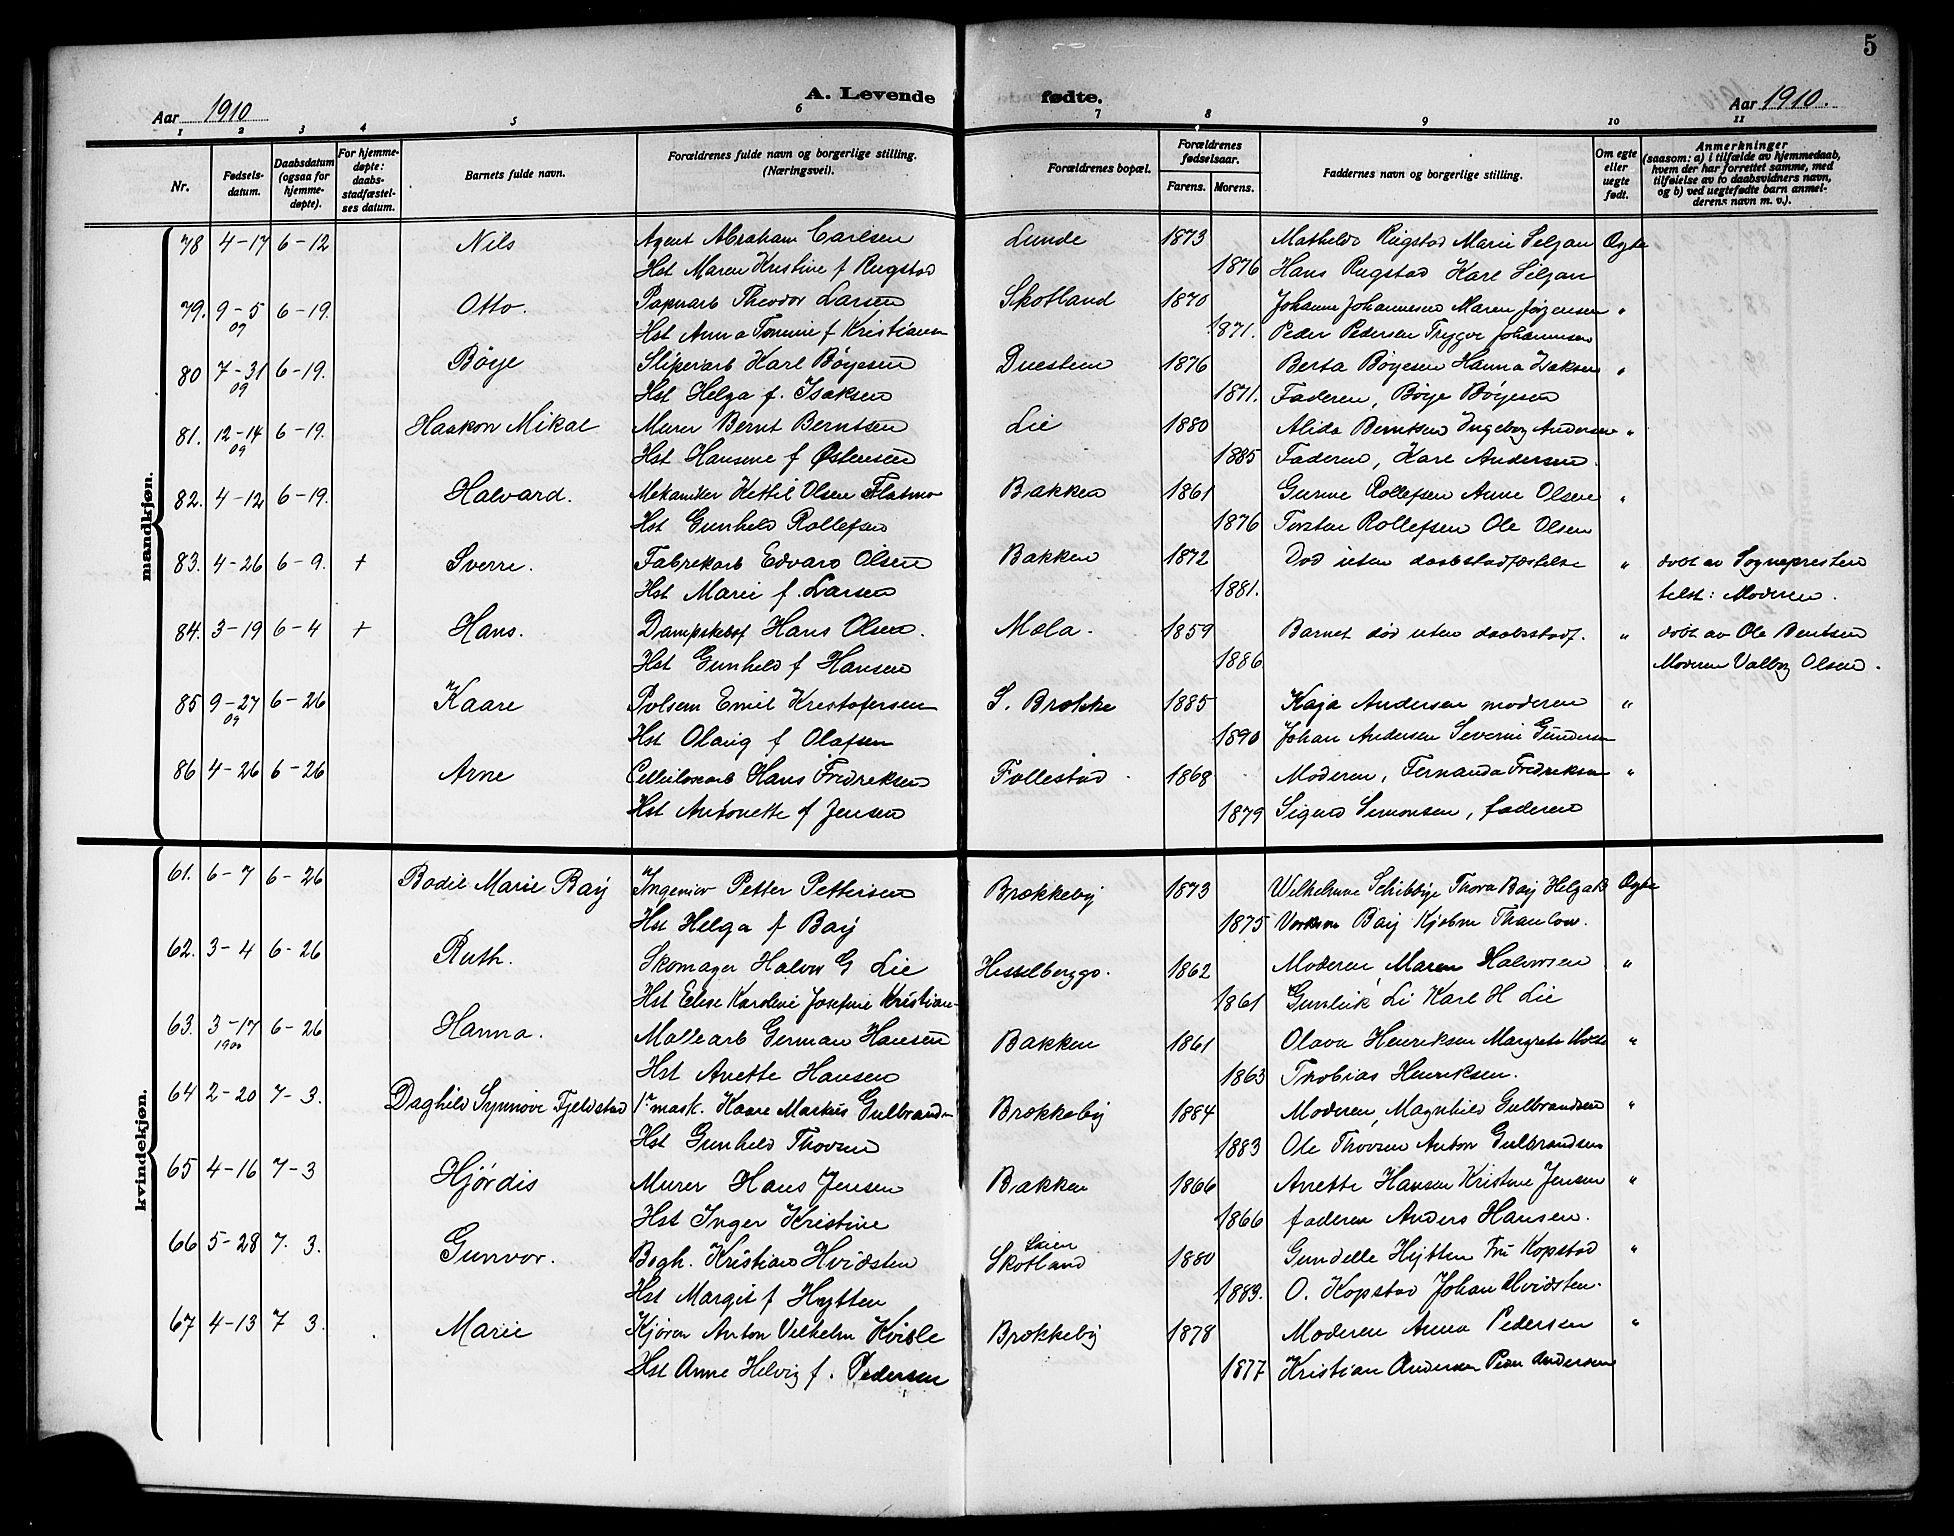 5
A. Levende fødte.
Aar 1910
Aar 1910.
1 2 3 4 5 6 7 8 9 10 11
Nr.
Fødsels-
datum.
Daabsdatum
(ogsaa for
hjemme-
døpte).
For hjemme-
døpte:
daabs-
stadfæstel-
ses datum.
Barnets fulde navn.
Forældrenes fulde navn og borgerlige stilling.
(Næringsvei).
Forældrenes bopæl.
Forældrenes
fødselsaar.
Farens. Morens.
Faddernes navn og borgerlige stilling.
Om egte
eller
uegte
født.
Anmerkninger
(saasom: a) i tilfælde av hjemmedaab,
hvem der har forrettet samme, med
tilføielse av to daabsvidners navn,
og b) ved uegtefødte barn anmel-
derens navn m. v.).
mandkjøn.
78 4-17 6-12 Nils Agent Abraham Carlsen Lunde 1873 Mathilde Rugstad Marie Seljan Egte
Hst Maren Kristine f Rugstad 1876 Hans Rugstad Karl Seljan
79. 9-5 6-19. Otto. Papirarb Theodor Larsen Skotland 1870 Johanne Johannesen Maren Jørgensen "
09 Hst Anna Tomine f Kristiansen 1871. Peder Pedersen Trygve Johannesen
80 7-31 6-19. Bøye Sliperarb Karl Bøyesen Duestien 1876 Berta Bøyesen Hanna Isaksen "
09 Hst Helga f. Isaksen 1871. Faderen, Bøye Bøyesen
81. 12-14 6-19. Haakon Mikal Murer Bernt Berntsen Lie 1880 Alida Berntsen Ingeborg Andersen "
09 Hst Hansine f Østensen 1885 Faderen, Karl Andersen.
82. 4-12 6-19. Halvard. Mekaniker Kettil Olsen Flatmo Bakken 1861 Gurine Rollefsen Anne Olsen "
Hst Gunhild Rollefsen 1876 Torsten Rollefsen Ole Olsen
83. 4-26 6-9. + Sverre. Fabrekarb Edvard Olsen Bakken 1872 Død uten daabstadfæstelse " døbt av Sognepresten
Hst Marie f. Larsen 1881. telst: Moderen.
84. 3-19 6-4 + Hans. Dampskebsf Hans Olsen. Mæla. 1859 Barnet død uten daabsstadf. " døbt av Ole Bentsen
Hst Gunhild f Hansen 1886 Moderen Valborg Olsen.
85 9-27 6-26 Kaare Pølsem Emil Kristofersen S. Brække 1885 Kaja Andersen moderen "
09 Hst Olaug f Olafsen 1890 Johan Andersen Severin Gundersen
86 4-26 6-26 Arne Celluloxarb Hans Fredriksen Follestad 1868 Moderen, Fernanda Fredriksen "
Hst Antonette f Jensen 1879 Sigurd Simonsen, faderen
kvindekjøn.
61. 6-7 6-26 Bodil Marie Bay Ingeniør Petter Pettersen Brækkeby 1873 Wilhelmine Schibbye Thora Bay Helga B Egte
Hst Helga f Bay 1875 Bay Kjøbm Thaulow.
62. 3-4 6-26 Ruth. Skomager Halvor G Lie Hesselberggs. 1862 Moderen Maren Halvorsen "
Hst Elise Karoline Josefine Kristian- 1861 Gunleik Li Karl H Lie
63. 3-17 6-26 Hanna. Møllearb German Hansen Bakken 1861 Olava Henriksen Margrete Holte "
1900 Hst Anette Hansen 1863 Thobias Henriksen.
64 2-20 7-3. Daghild Synnøve Fjeldstad 1ª mask. Kaare Markus Gulbrands- Brækkeby 1884 Moderen, Magnhild Gulbrandsen "
Hst Gunhild Thovsen 1883 Ole Thovsen Anton Gulbrandsen
65 4-16 7-3 Hjørdis Murer Hans Jensen Bakken 1866 Anette Hansen Kristine Jensen "
Hst Inger Kristine 1866 faderen Anders Hansen.
66 5-28 7. 3. Gunvor. Bogh. Kristian Hvidsten Skien Skotland 1880 Gundelle Hytten Fru Kopstad "
Hst Margit f Hytten 1883. O. Kopstad Johan Hvidsten.
67 4-13 7 3. Marie Kjører Anton Vilhelm Kvisle Brækkeby 1878 Moderen Anna Pedersen "
Hst Anne Helvig f. Pedersen 1877 Kristian Andersen Peder Andersen